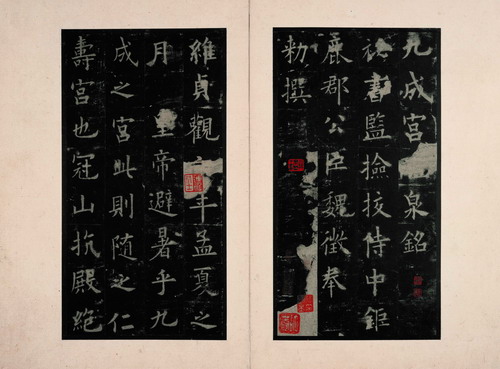 九成宮 泉銘
秘書監撿挍侍中鉅
鹿郡公臣魏徵奉
勑撰
維貞觀 年孟夏之
月 皇帝避暑乎九
成之宮此則隨之仁
壽宮也冠山抗殿絶